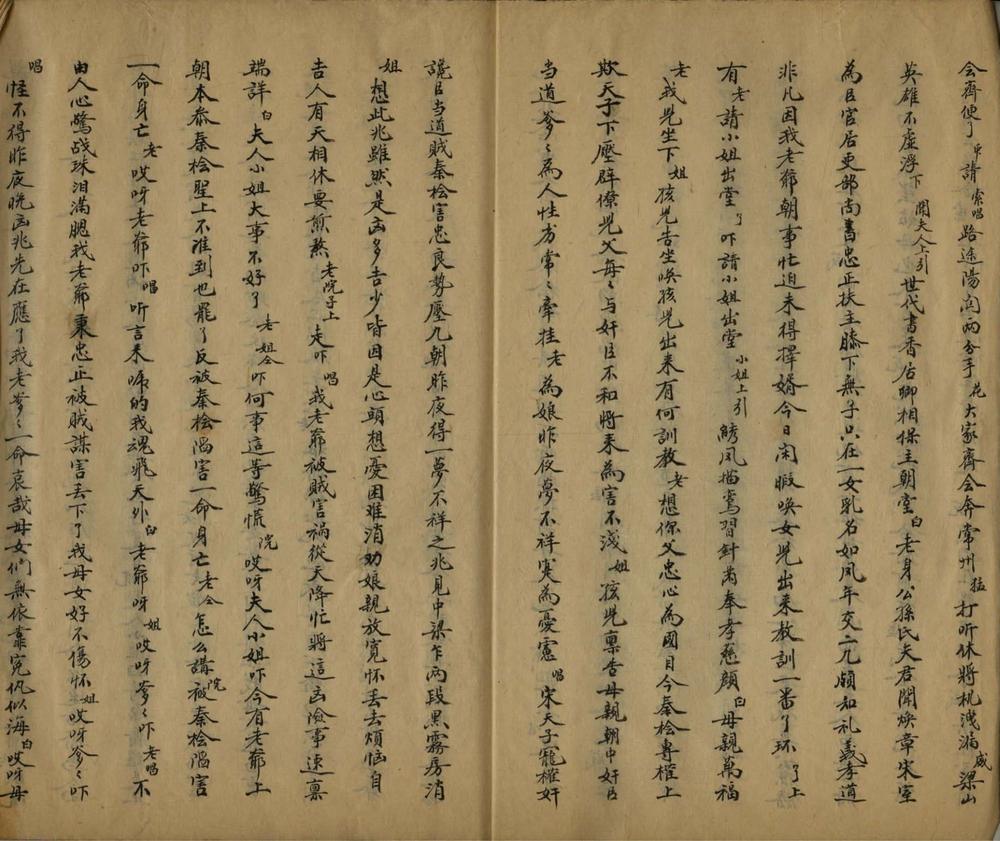 会齊便了申請索唱路途陽関两分手花大家齊会奔常州猛打听休将机洩漏咸梁山
英雄不虚浮下聞夫人上引世代書香店卿相保主朝堂白老身公孫氏夫君聞焕章宋室
為臣官居吏部尚書忠正扶主膝下無子只在一女乳名如凤年交二九頗知礼義孝道
非凡因我老爺朝事忙迫未得擇婿今日闲暇唤女兒出来教訓一番了环了上
有老請小姐出堂了吓請小姐出堂小姐上引綉凤描鸞習針黹奉孝慈顔白母親萬福
老我兒坐下姐孩兒告坐唤孩兒出来有何訓教老想你父忠心為國目今秦桧專權上
欺天子下壓群僚兒父每〻与奸臣不和将来為害不浅姐孩兒禀告母親朝中奸臣
当道爹〻為人性方常〻牵挂老為娘昨夜夢不祥实為憂慮唱宋天子寵權奸
讒臣当道賊秦桧害忠良势壓九朝昨夜得一夢不祥之兆見中梁乍两段黑霧房消
姐想此兆雖然是凶多吉少皆因是心頭想憂困难消劝娘親放寬怀丢去烦恼自
吉人有天相休要煎熬老院子上走吓唱我老爺被賊害禍從天降忙将這凶險事速禀
端詳白夫人小姐大事不好了老姐仝吓何事這等驚慌院哎呀夫人小姐吓今有老爺上
朝本恭秦桧聖上不准到也罷了反被秦桧陷害一命身亡老仝怎么講院被秦桧陷害
一命身亡老哎呀老爺吓唱听言来唬的我魂飛天外白老爺呀姐哎呀爹〻吓老唱不
由人心驚战珠泪满腮我老爺秉忠正被賊謀害丢下了我母女好不傷怀姐哎呀爹〻吓
唱怪不得昨夜晚凶兆先在應了我老爹〻一命哀哉母女們無依靠冤仇似海白哎呀母